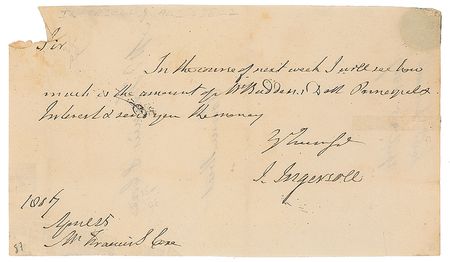 Sir
In the course of next week I will see how
much is the amount of Mr Budden's Debt Principal &
Interest & send you the money
J. Ingersoll
1817
April 25
Mr Francis S Coxe
87